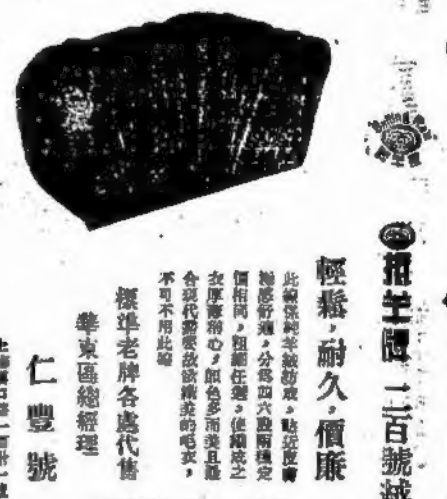 抵羊牌 二百號絨
輕鬆，耐久，價廉
此線係純羊絨紡成，貼近皮膚
極感舒適，分為四六股兩種定
價相同，粗細任選，使織成之
衣厚薄稱心，顏色多而美且最
合現代需要故欲織美的毛衣，
不可不用此線
標準老牌各處代售
華東區總經理
仁豐號